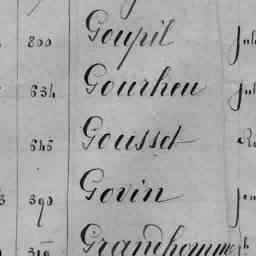 800 Goupil Jul
634 Gourheu Jul
645 Gousset
390 Govin
Grandhomme